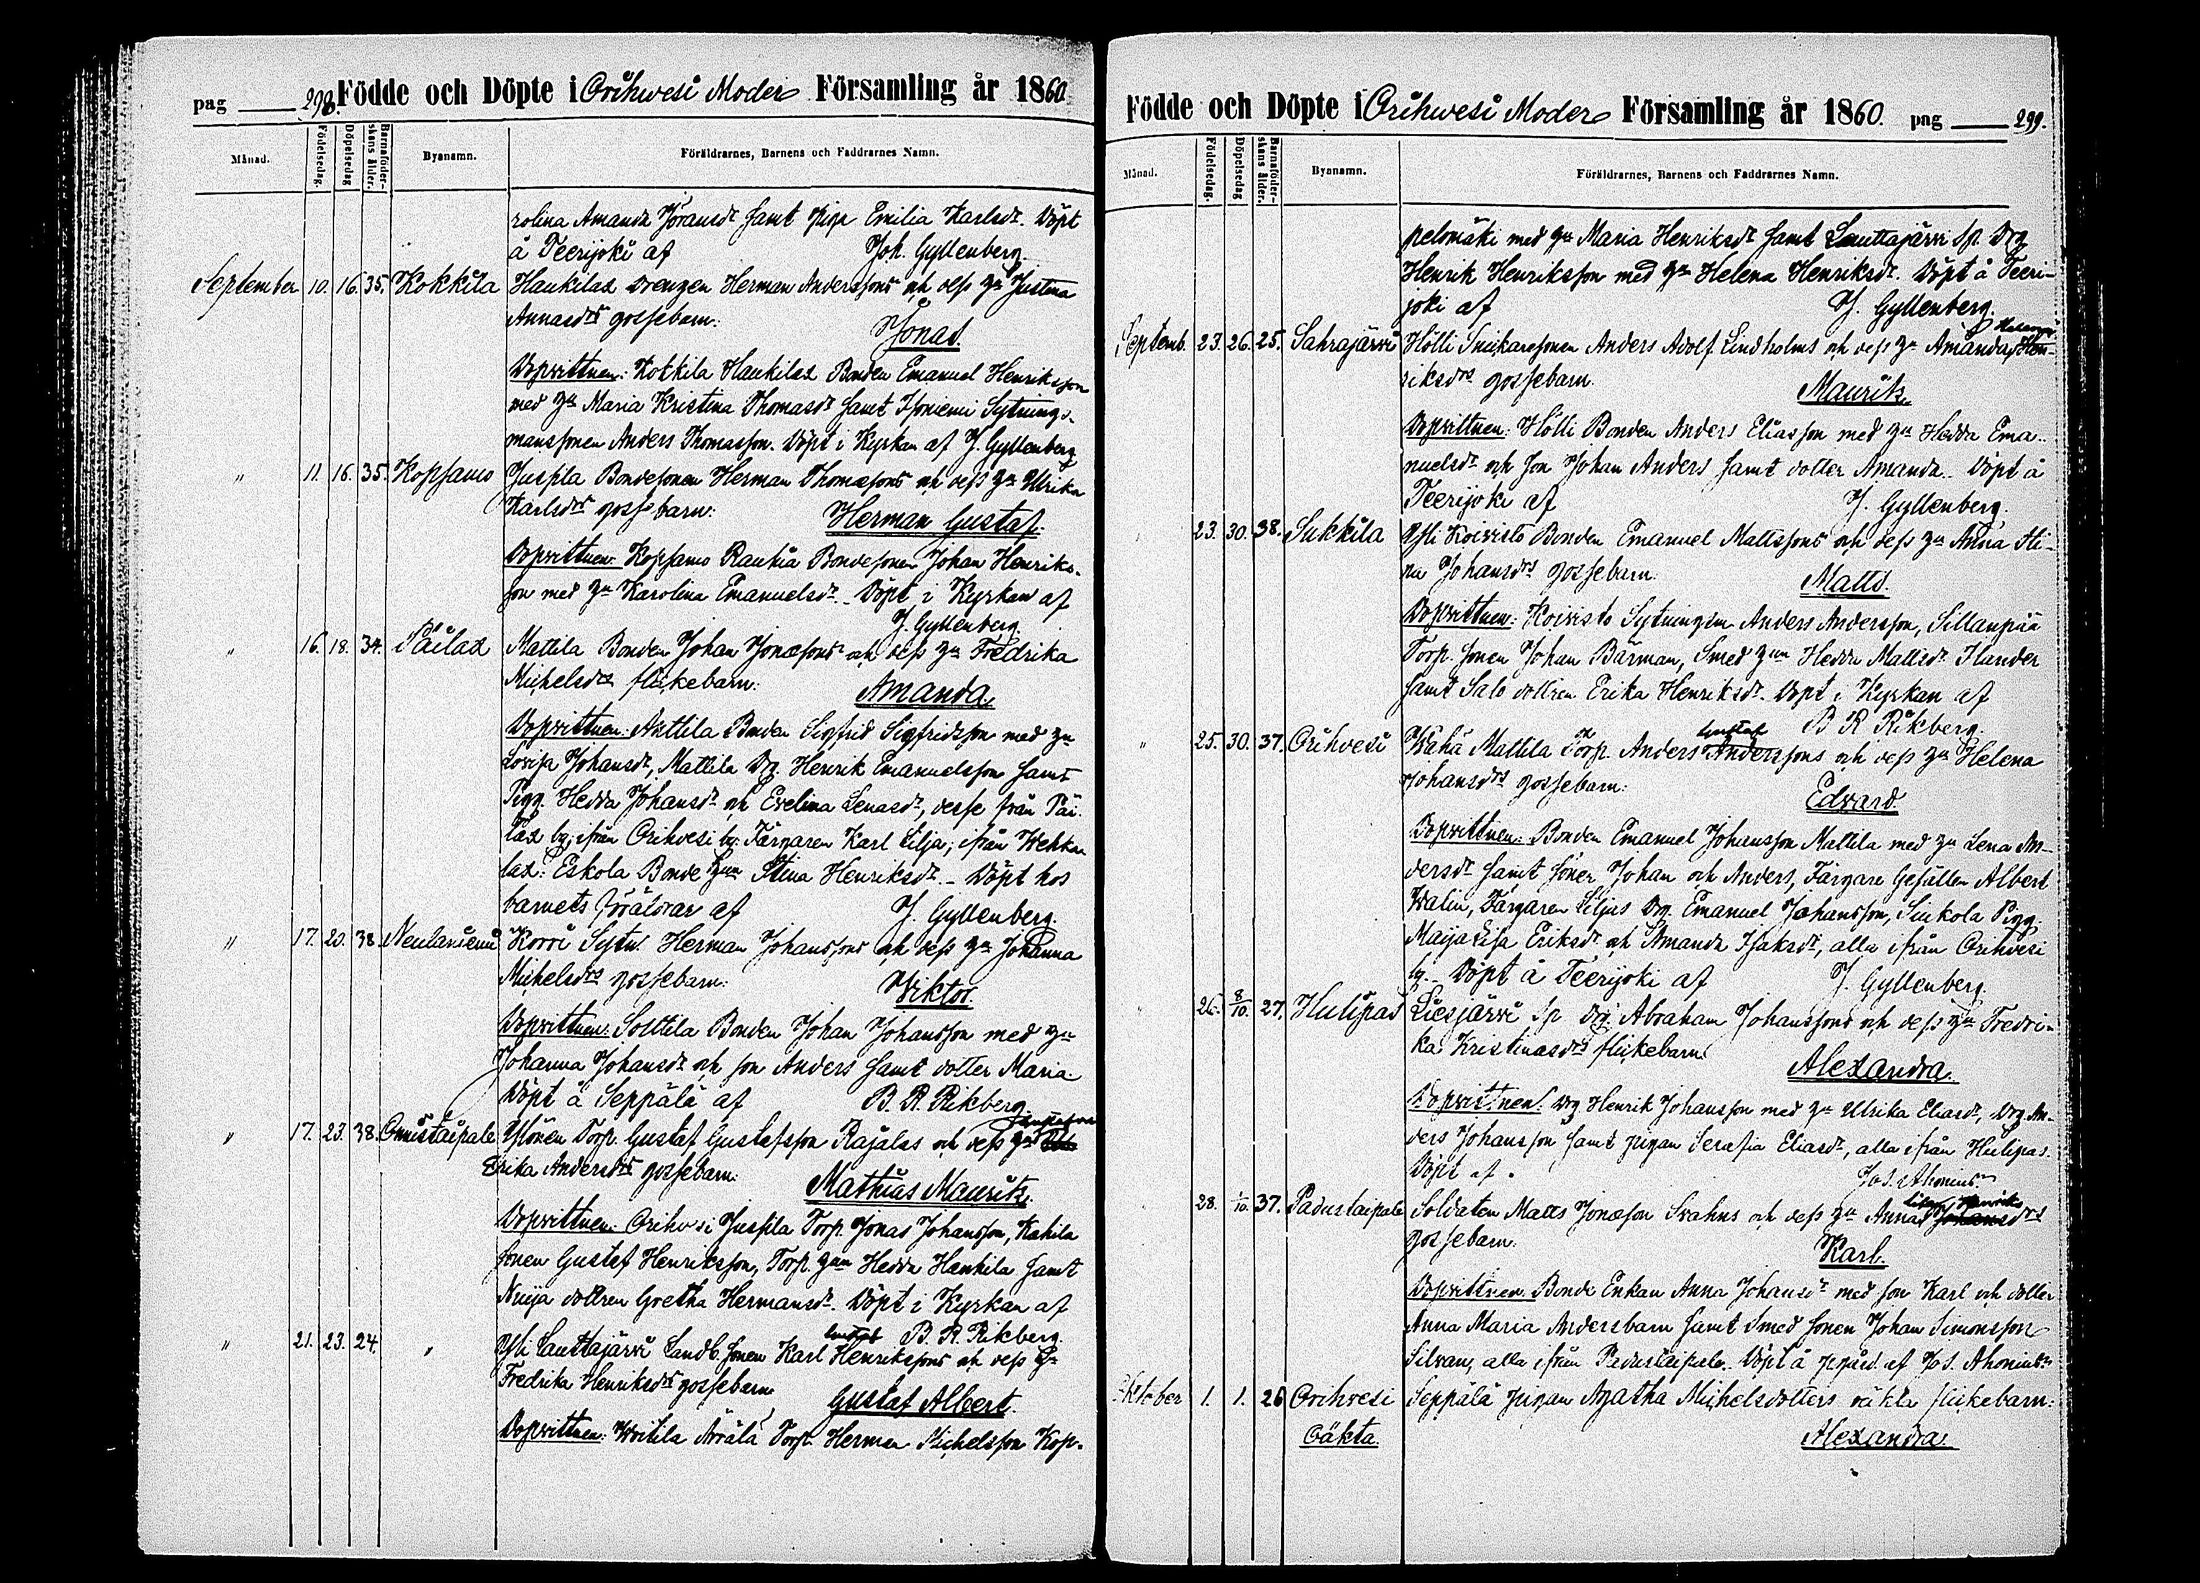 pag 298. Födde och Döpte i Orihwesi Moder Församling år 1860
Månad.
Födelsedag.
Döpelsedag
Barnaföder-
skans ålder.
Byanamn.
Föräldrarnes, Barnens och Faddrarnes Namn.
rolina Amanda Göransdr samt pigr Emilia Karlsdr. Döpt
å Teerijoki af Joh. Gyllenberg.
September 10. 16. 35. Kokkila Haukilax Drengen Herman Anderssons och dess hu Justina
Annasdrs gossebarn: Jonas.
Dopvittnen: Kokkila Haukilax Bonden Emanuel Henriksson
med hu Maria Kristina Thomasdr samt Isoniemi Sytnings-
manssonen Anders Thomasson. Döpt i Kyrkan af J. Gyllenberg
" 11. 16. 35. Kopsamo Jussila Bondesonen Herman Thomassons och dess hu Ulrika
Karlsdrs gossebarn: Herman Gustaf.
Dopvittnen: Kopsamo Rautia Bondesonen Johan Henriks-
son med hu Karolina Emanuelsdr. Döpt i Kyrkan af
J. Gyllenberg.
" 16. 18. 34. Päilax Mattila Bonden Johan Jonassons och dess hu Fredrika
Michelsdrs flickebarn: Amanda.
Dopvittnen: Anttila Bonden Sigfrid Sigfridsson med hu
Lovisa Johansdr, Mattila Drg. Henrik Emanuelsson samt
Pigg. Hedda Johansdr och Evelina Lenasdr, desse från Päi-
lax by; ifrån Orihvesi by: Färgaren Karl Lilja; ifrån Wehka-
lax: Eskola Bonde hun Stina Henriksdr. Döpt hos
barnets föräldrar af J. Gyllenberg.
" 17. 20. 38. Neulaniemi Korri Sytn. Herman Johanssons och dess hu Johanna
Michelsdrs gossebarn: Wiktor.
Dopvittnen: Solttila Bonden Johan Johansson med hu
Johanna Johansdr och son Anders samt dotter Maria.
Döpt å Seppälä af B. R. Rikberg
" 17. 23. 38. Onnistaipale Ylönen Torp. Gustaf Gustafsson Rajalas och dess hu
Erika Andersdrs gossebarn: Mathias Maurits.
Dopvittnen: Orihvesi Jussila Torp. Jonas Johansson, Kahila
sonen Gustaf Henriksson, Torp. hun Hedda Hankila samt
Nuija dottren Gretha Hermansdr. Döpt i Kyrkan af
B. R. Rikberg.
" 21. 23. 24. " Yli Lauttajärvi Landb. sonen Karl Gustaf Henrikssons och dess hu
Fredrika Henriksdrs gossebarn Gustaf Albert.
Dopvittnen: Woitila Ärrälä Torp. Herman Michelsson Kop-
Födde och Döpte i Orihwesi Moder Församling år 1860. pag 299.
Månad.
Födelsedag.
Döpelsedag
Barnaföder-
skans ålder.
Byanamn.
Föräldrarnes, Barnens och Faddrarnes Namn.
pelomäki med hu Maria Henriksdr samt Lauttajärvi Sp. Drg
Henrik Henriksson med hu Helena Henriksdr. Döpt å Teeri-
joki af J. Gyllenberg.
Septemb. 23. 26. 25. Sahrajärvi Hölli Snickaresonen Anders Adolf Lindholms och dess hu Amanda Helena Hen-
riksdrs gossebarn. Maurits.
Dopvittnen: Hölli Bonden Anders Eliasson med hu Hedda Ema-
nuelsdr och son Johan Anders samt dotter Amanda. Döpt å
Teerijoki af J. Gyllenberg.
" 23. 30. 38. Sukkila Yli Koivisto Bonden Emanuel Mattssons och dess hu Anna Sti-
na Johansdrs gossebarn: Matts.
Dopvittnen: Koivisto Sytningsm Anders Andersson, Sillanpää
Torp. sonen Johan Bärman, Smed hun Hedda Mattsdr Ilander
samt Salo dottren Erika Henriksdr. Döpt i Kyrkan af
B R Rikberg.
" 25. 30. 37. Orihvesi Wähä Mattila Torp. Anders Gustaf Anderssons och dess hu Helena
Johansdrs gossebarn: Edvard.
Dopvittnen: Bonden Emanuel Johansson Mattila med hu Lena An-
dersdr samt söner Johan och Anders, Färgare Gesällen Albert
Walin, Färgaren Liljas Drg. Emanuel Johansson, Suikola Pigg.
Maija Lisa Eriksdr och Amanda Isaksdr, alla ifrån Orihvesi
by. Döpt å Teerijoki af J. Gyllenberg.
" 26. 8/10. 27. Hulipas Liesjärvi Sp. Drg. Abraham Johanssons och dess hu Fredri-
ka Kristinasdrs flickebarn: Alexandra.
Dopvittnen: Drg Henrik Johansson med hu Ulrika Eliasdr, Drg An-
ders Johansson samt pigan Serafia Eliasdr, alla ifrån Hulipas.
Döpt af Jos. Ahonius
28. 1/10. 37. Padustaipale Soldaten Matts Jonasson Svahns och dess hu Anna Johansdrs
gossebarn: Karl.
Dopvittnen: Bonde Enkan Anna Johansdr med son Karl och dotter
Anna Maria Andersbarn samt Smed sonen Johan Simonsson
Silvan, alla ifrån Padustaipale. Döpt å pgård af Jos. Ahonius
Oktober 1. 1. 26 Orihvesi Seppälä pigan Agatha Michelsdotters oäkta flickebarn:
Oäkta. Alexandra.